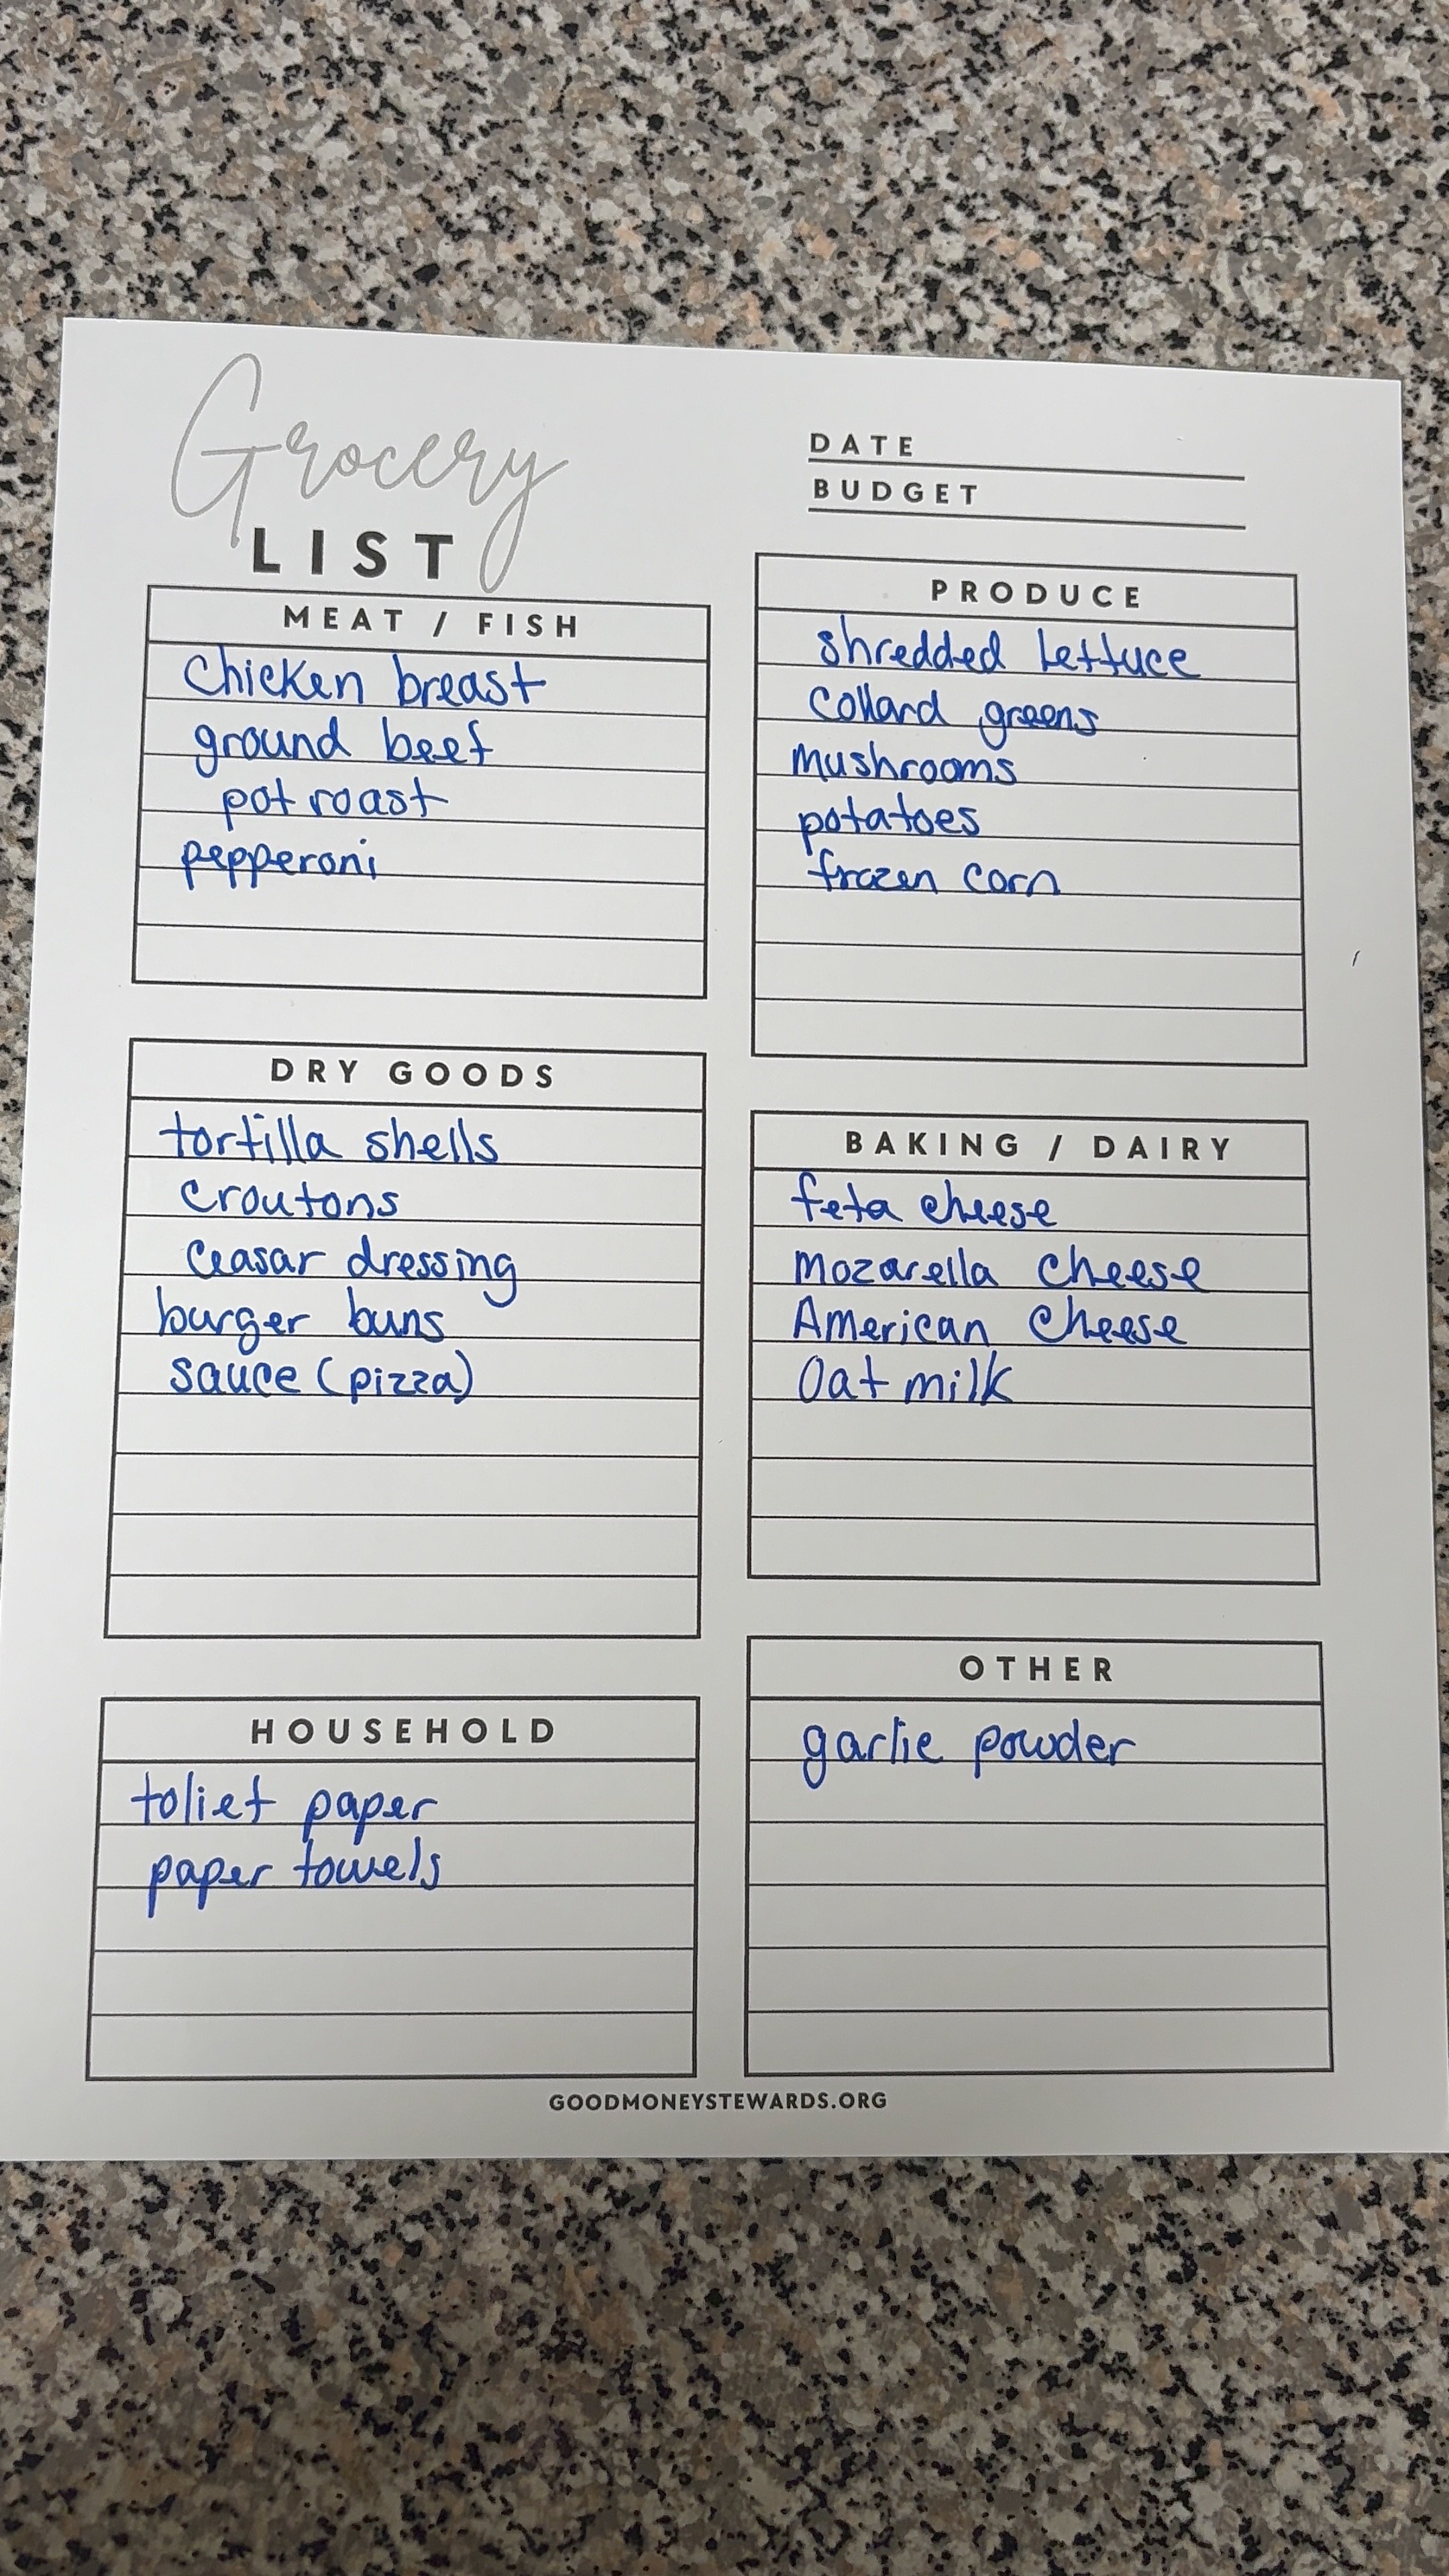 Grocery
LIST
DATE
BUDGET
MEAT / FISH
Chicken breast
ground beef
pot roast
pepperoni
PRODUCE
shredded lettuce
Collard greens
Mushrooms
potatoes
frozen corn
DRY GOODS
tortilla shells
croutons
Ceasar dressing
burger buns
sauce (pizza)
BAKING / DAIRY
feta cheese
Mozarella Cheese
American Cheese
Oat milk
HOUSEHOLD
toliet paper
paper towels
OTHER
garlic powder
GOODMONEYSTEWARDS.ORG